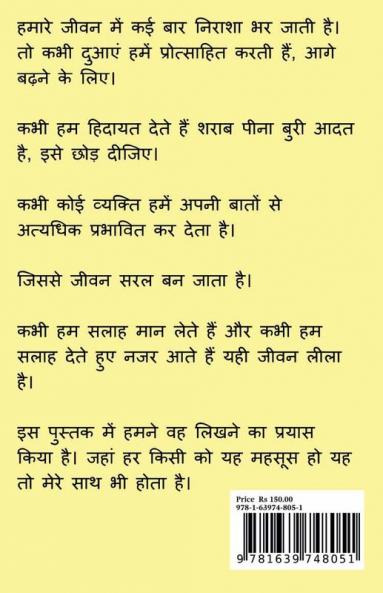 हमारे जीवन में कई बार निराशा भर जाती है।
तो कभी दुआएं हमें प्रोत्साहित करती हैं, आगे
बढ़ने के लिए।
कभी हम हिदायत देते हैं शराब पीना बुरी आदत
है, इसे छोड़ दीजिए।
कभी कोई व्यक्ति हमें अपनी बातों से
अत्यधिक प्रभावित कर देता है।
जिससे जीवन सरल बन जाता है।
कभी हम सलाह मान लेते हैं और कभी हम
सलाह देते हुए नजर आते हैं यही जीवन लीला
है।
इस पुस्तक में हमने वह लिखने का प्रयास
किया है। जहां हर किसी को यह महसूस हो यह
तो मेरे साथ भी होता है।
Price Rs 150.00
978-1-63974-805-1
9 781639 748051